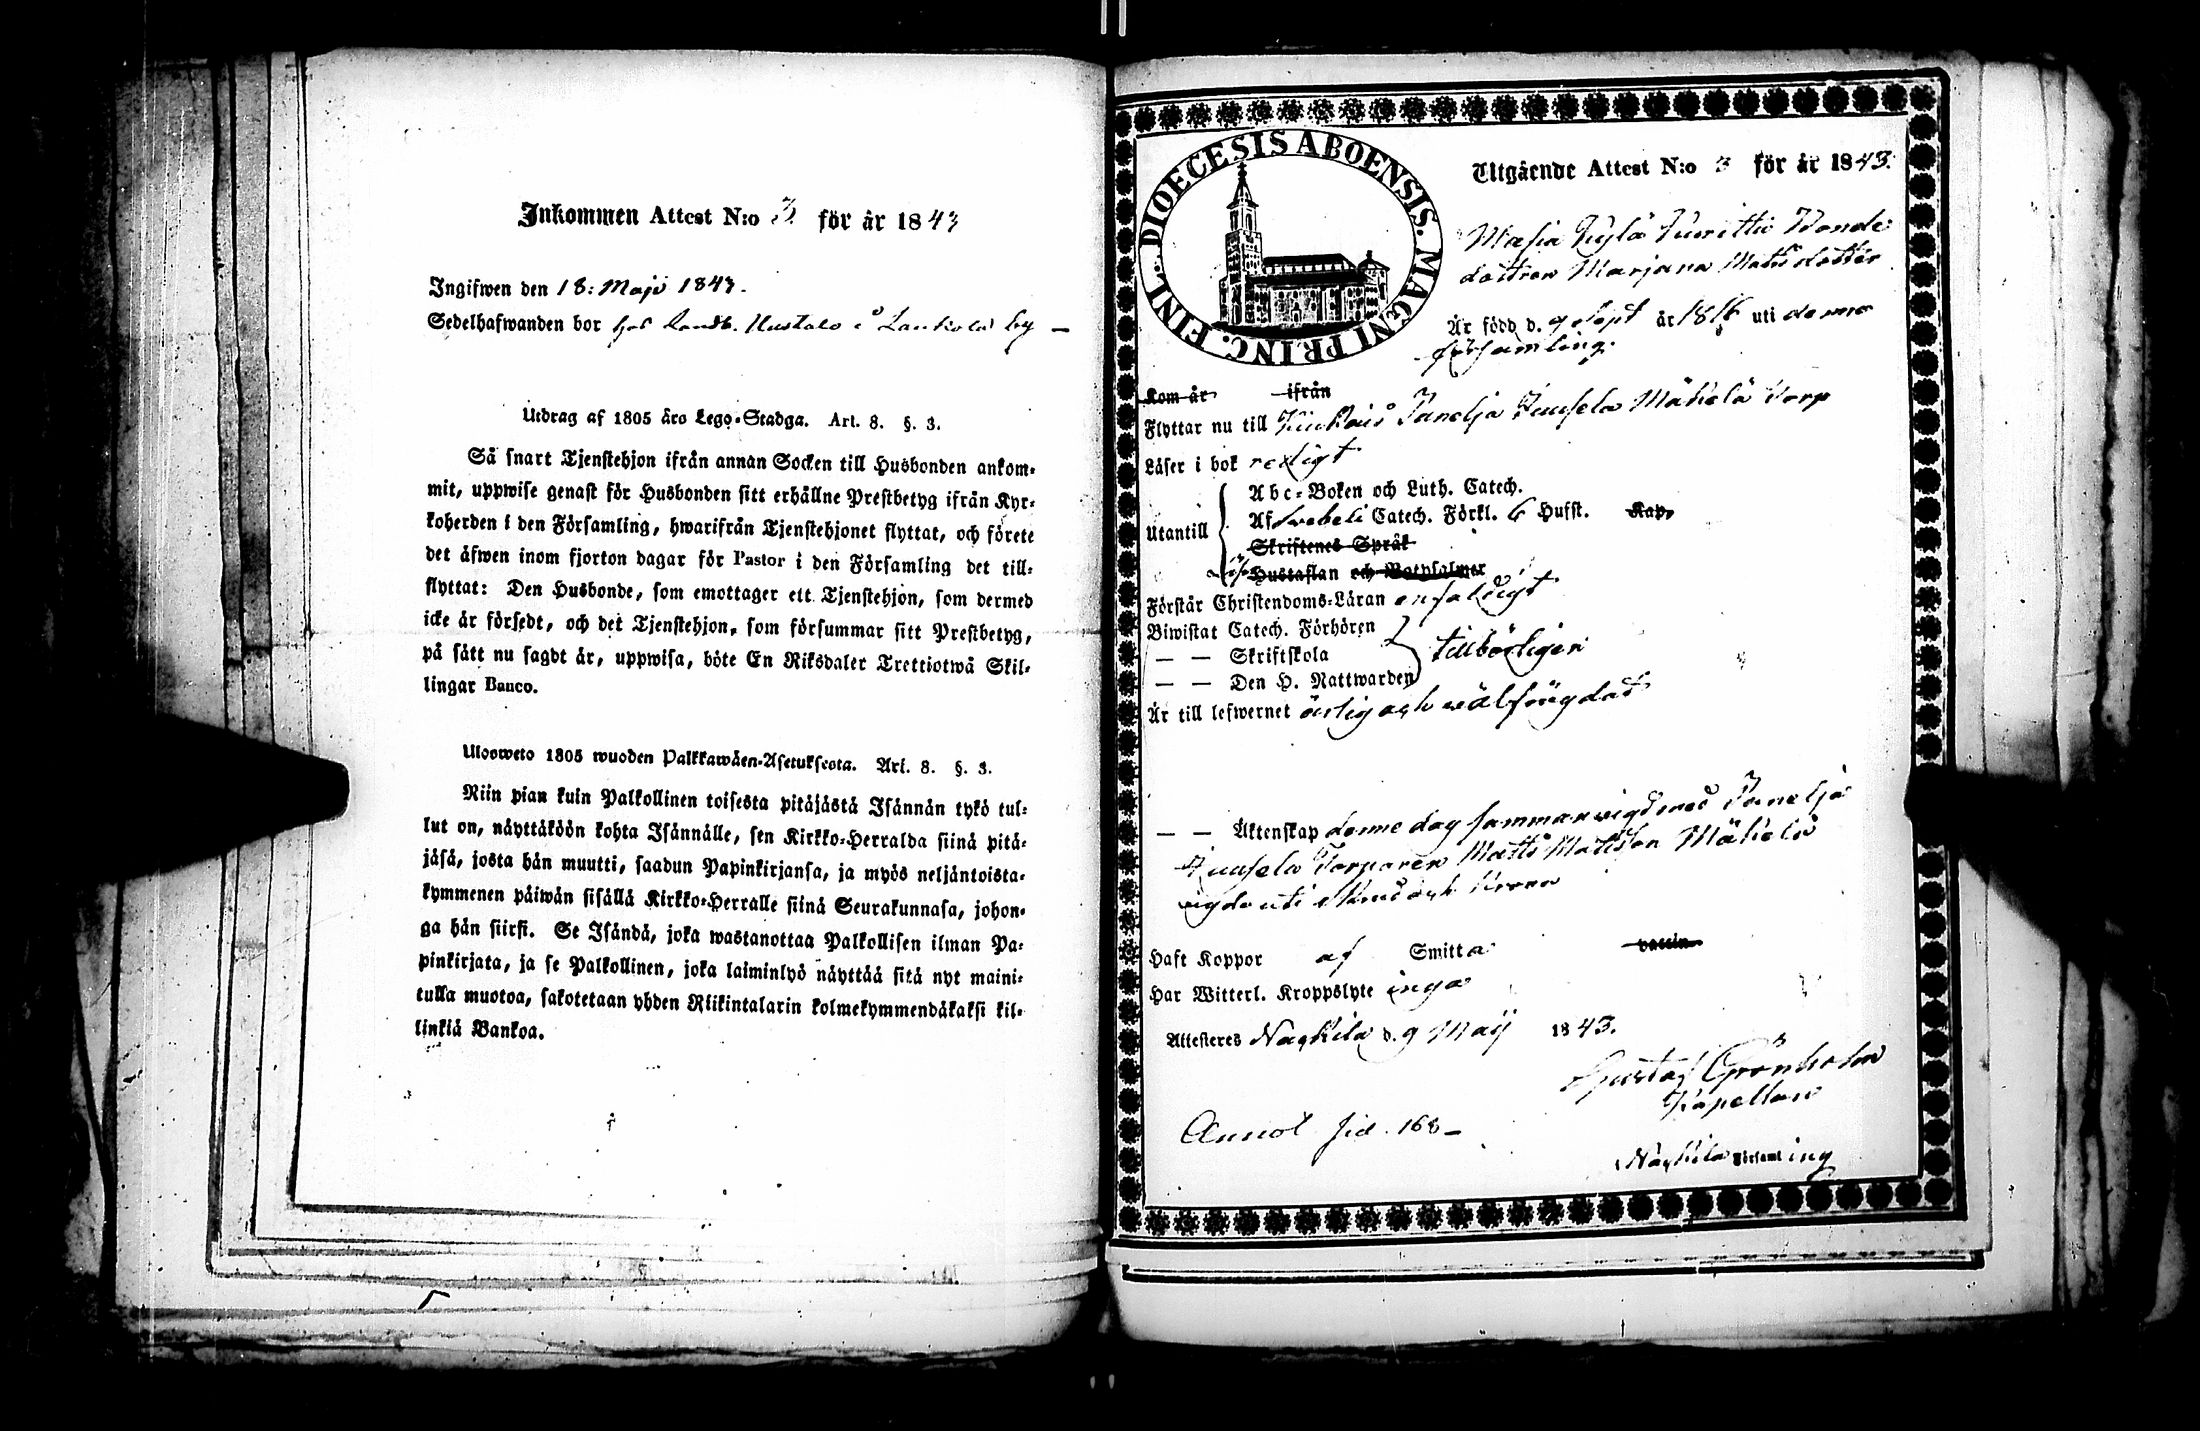 Inkommen Attest N:o 3 för år 1843
Ingifwen den 18: Maji 1843.
Sedelhafwanden bor hos by
Utdrag af 1805 års Lego-Stadga. Art. 8. §. 3.
Så snart Tjenstehjon ifrån annan Socken till Husbonden ankom-
mit, uppwise genast för Husbonden sitt erhållne Prestbetyg ifrån Kyr-
koherden i den Församling, hwarifrån Tjenstehjonet flyttat, och förete
det äfwen inom fjorton dagar för Pastor i den Församling det till-
flyttat: Den Husbonde, som emottager ett Tjenstehjon, som dermed
icke är försedt, och det Tjenstehjon, som försummar sitt Prestbetyg,
på sätt nu sagdt är, uppwisa, böte En Riksdaler Trettiotwå Skil-
lingar Banco.
Uloosweto 1805 wuoden Palkkawäen-Asetuksesta. Art. 8. §. 3.
Niin pian kuin Palkollinen toisesta pitäjästä Isännän tykö tul-
lut on, näyttäköön kohta Isännälle, sen Kirkko-Herralda siinä pitä-
jäsä, josta hän muutti, saadun Papinkirjansa, ja myös neljäntoista-
kymmenen päiwän sisällä Kirkko-Herralle siinä Seurakunnasa, johon-
ga hän siirsi. Se Isändä, joka wastanottaa Palkollisen ilman Pa-
pinkirjata, ja se Palkollinen, joka laiminlyö näyttää sitä nyt maini-
tulla muotoa, sakotetaan yhden Riikintalarin kolmekymmendäkaksi kil-
linkiä Bankoa.
DIOECESIS ABOENSIS. MAGNI PRINC. FINL.
Utgående Attest N:o 3 för år 1843.
Masia Kylä Bonde
dottren Marjana Matsdotter
Är född d. 9 Sept år 1816 uti denna
församling.
Kom år ifrån
Flyttar nu till Kiukais Panelja Juusela Mäkelä torp
Läser i bok redigt
Utantill
Abc-Boken och Luth. Catech.
Af Svebeli Catech. Förkl. 6 Hufst. Kap.
Skriftenes Språk
Hustaflan och Botpsalmer
Förstår Christendoms-Läran enfaldigt
Biwistat Catech. Förhören
— — Skriftskola tillbörligen
— — Den H. Nattwarden
Är till lefwernet ärlig och wälfrägdad
— — Äktenskap denne dag sammanwigd med Panelja
Juusela Torparen Matts Mattsson Mäkelä
wigde uti skrud och krona
Haft Koppor af Smitta vaccin
Har Witterl. Kroppslyte inga
Attesteres Nackila d. 9 Maij 1843.
Gustaf Grönholm
Kapellan
Annot. sid. 168 —
Nackila Församling